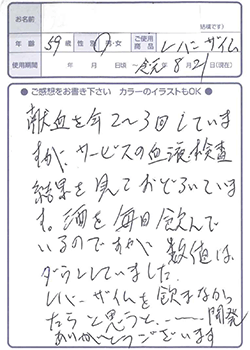 お名前
結構です)
年齢 59歳 性別 男・女 ご使用商品 レバーザイム
使用期間 年 月 日頃〜 8月21日(現在)
●ご感想をお書き下さい カラーのイラストもOK●
献血を年2〜3回しています
が、サービスの血液検査
結果を見ておどろいていま
す。酒を毎日飲んで
いるのですが、数値は
ダウンしていました。
レバーザイムを飲まなかっ
たらと思うと、――開発
ありがとうございます